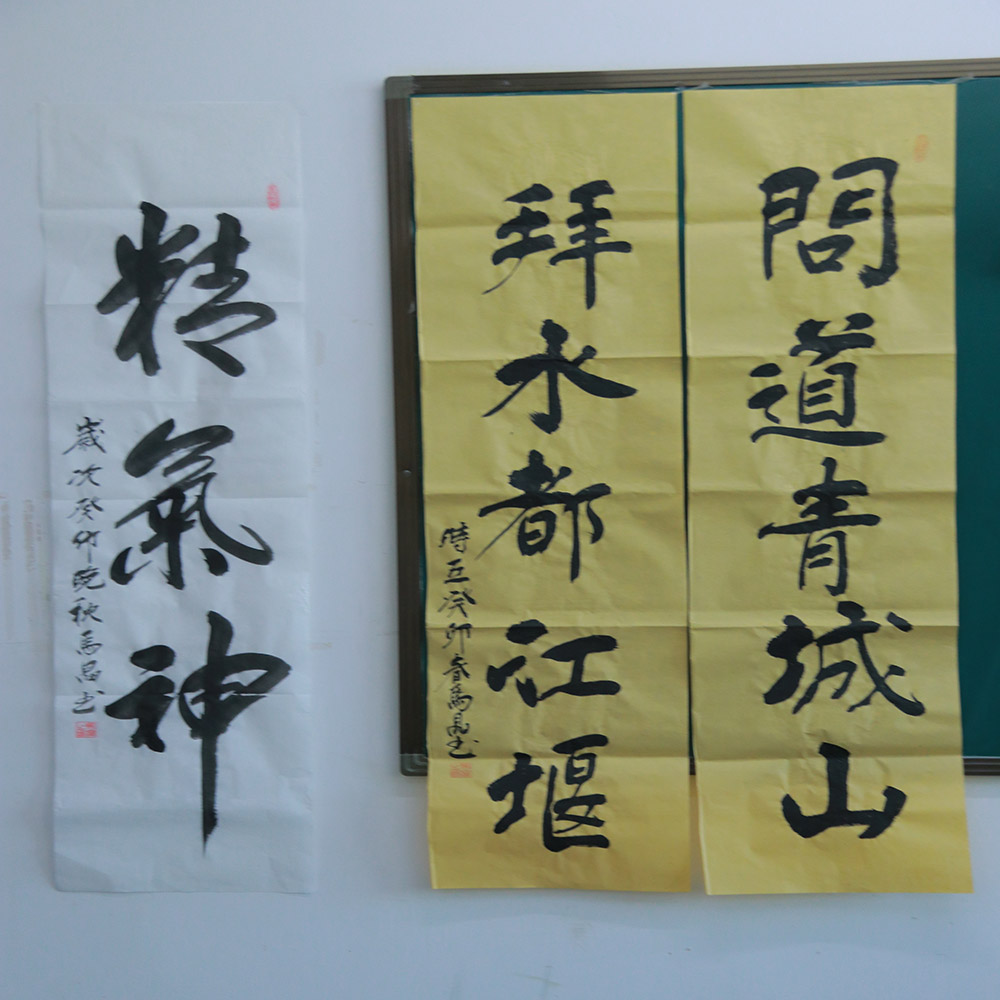 問道青城山
拜水都江堰
時在癸卯春馬昌書
精氣神
歲次癸卯晚秋馬昌书